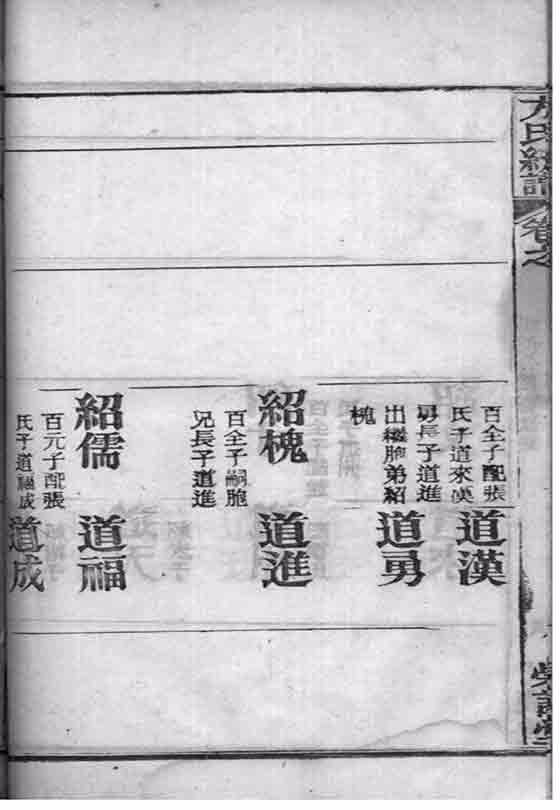 方氏統譜
卷之
百全子配張
氏子道來漢
勇長子道進
出繼胞弟紹
槐
道漢
道勇
紹槐
百全子嗣胞
兄長子道進
道進
紹儒
百元子配張
氏子道福成
道福
道成